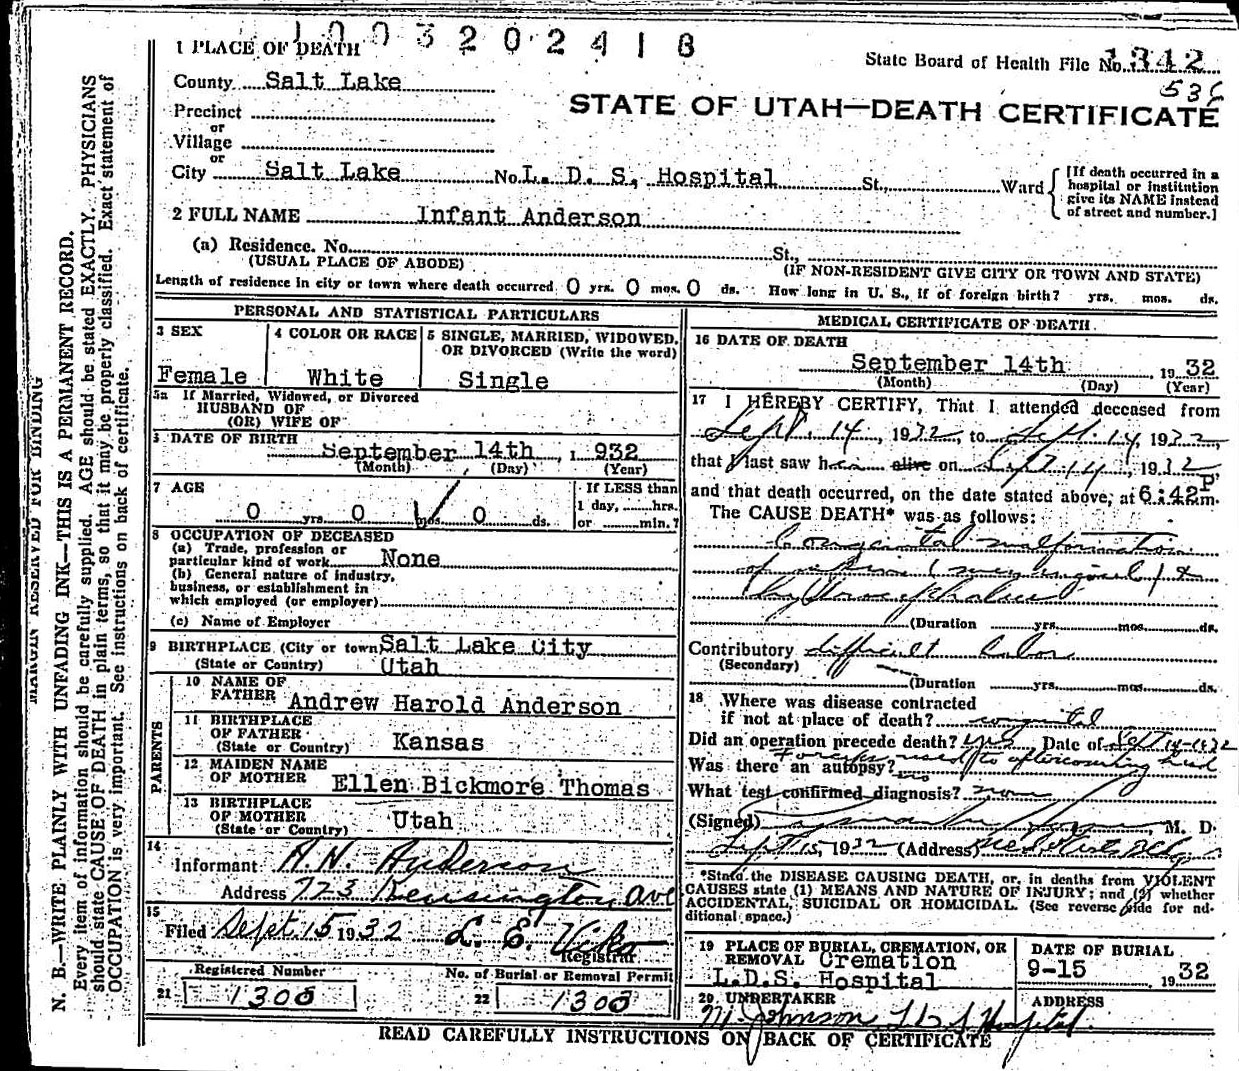 1003202418
1 PLACE OF DEATH
State Board of Health File No. 1342
County Salt Lake
536
STATE OF UTAH—DEATH CERTIFICATE
Precinct
or
Village
or
City Salt Lake No. L. D. S, Hospital St., Ward
[If death occurred in a hospital or institution give its NAME instead of street and number.]
2 FULL NAME Infant Anderson
(a) Residence. No. St.,
(USUAL PLACE OF ABODE) (IF NON-RESIDENT GIVE CITY OR TOWN AND STATE)
Length of residence in city or town where death occurred 0 yrs. 0 mos. 0 ds. How long in U. S., if of foreign birth? yrs. mos. ds.
PERSONAL AND STATISTICAL PARTICULARS
3 SEX
Female
4 COLOR OR RACE
White
5 SINGLE, MARRIED, WIDOWED, OR DIVORCED (Write the word)
Single
5a If Married, Widowed, or Divorced
HUSBAND OF
(OR) WIFE OF
DATE OF BIRTH
September 14th, 1932
(Month) (Day) (Year)
7 AGE
0 yrs. 0 mos. 0 ds.
If LESS than
1 day, hrs.
or min.?
8 OCCUPATION OF DECEASED
(a) Trade, profession or
particular kind of work None
(b) General nature of industry,
business, or establishment in
which employed (or employer)
(c) Name of Employer
9 BIRTHPLACE (City or town) Salt Lake City
(State or Country) Utah
PARENTS
10 NAME OF
FATHER Andrew Harold Anderson
11 BIRTHPLACE
OF FATHER
(State or Country) Kansas
12 MAIDEN NAME
OF MOTHER Ellen Bickmore Thomas
13 BIRTHPLACE
OF MOTHER
(State or Country) Utah
14
Informant A. N. Anderson
Address 723 Kensington Ave
15
Filed Sept. 15 1932 L. E. Viko
Registrar
Registered Number
21 1306
No. of Burial or Removal Permit
22 1306
MEDICAL CERTIFICATE OF DEATH
16 DATE OF DEATH
September 14th, 1932
(Month) (Day) (Year)
17 I HEREBY CERTIFY, That I attended deceased from
Sept. 14, 1932, to Sept. 14, 1932,
that I last saw her alive on Sept 14, 1932
and that death occurred, on the date stated above, at 6:42 P m.
The CAUSE DEATH* was as follows:
Congenital malformation
of
hydrocephalus
(Duration yrs. mos. ds.
Contributory difficult labor
(Secondary)
(Duration yrs. mos. ds.
18 Where was disease contracted
if not at place of death? congenital
Did an operation precede death? yes Date of Sept 14-1932
Forceps used to aftercoming head
Was there an autopsy? no
What test confirmed diagnosis? none
(Signed) M. D.
Sept 15, 1932 (Address)
*State the DISEASE CAUSING DEATH, or, in deaths from VIOLENT
CAUSES state (1) MEANS AND NATURE OF INJURY; and (2) whether
ACCIDENTAL, SUICIDAL OR HOMICIDAL. (See reverse side for ad-
ditional space.)
19 PLACE OF BURIAL, CREMATION, OR
REMOVAL Cremation
L.D.S. Hospital
DATE OF BURIAL
9-15, 1932
20 UNDERTAKER
M. Johnson L D S Hospital
ADDRESS
READ CAREFULLY INSTRUCTIONS ON BACK OF CERTIFICATE
MARGIN RESERVED FOR BINDING
N. B.—WRITE PLAINLY WITH UNFADING INK—THIS IS A PERMANENT RECORD.
Every item of information should be carefully supplied. AGE should be stated EXACTLY. PHYSICIANS
should state CAUSE OF DEATH in plain terms, so that it may be properly classified. Exact statement of
OCCUPATION is very important. See instructions on back of certificate.